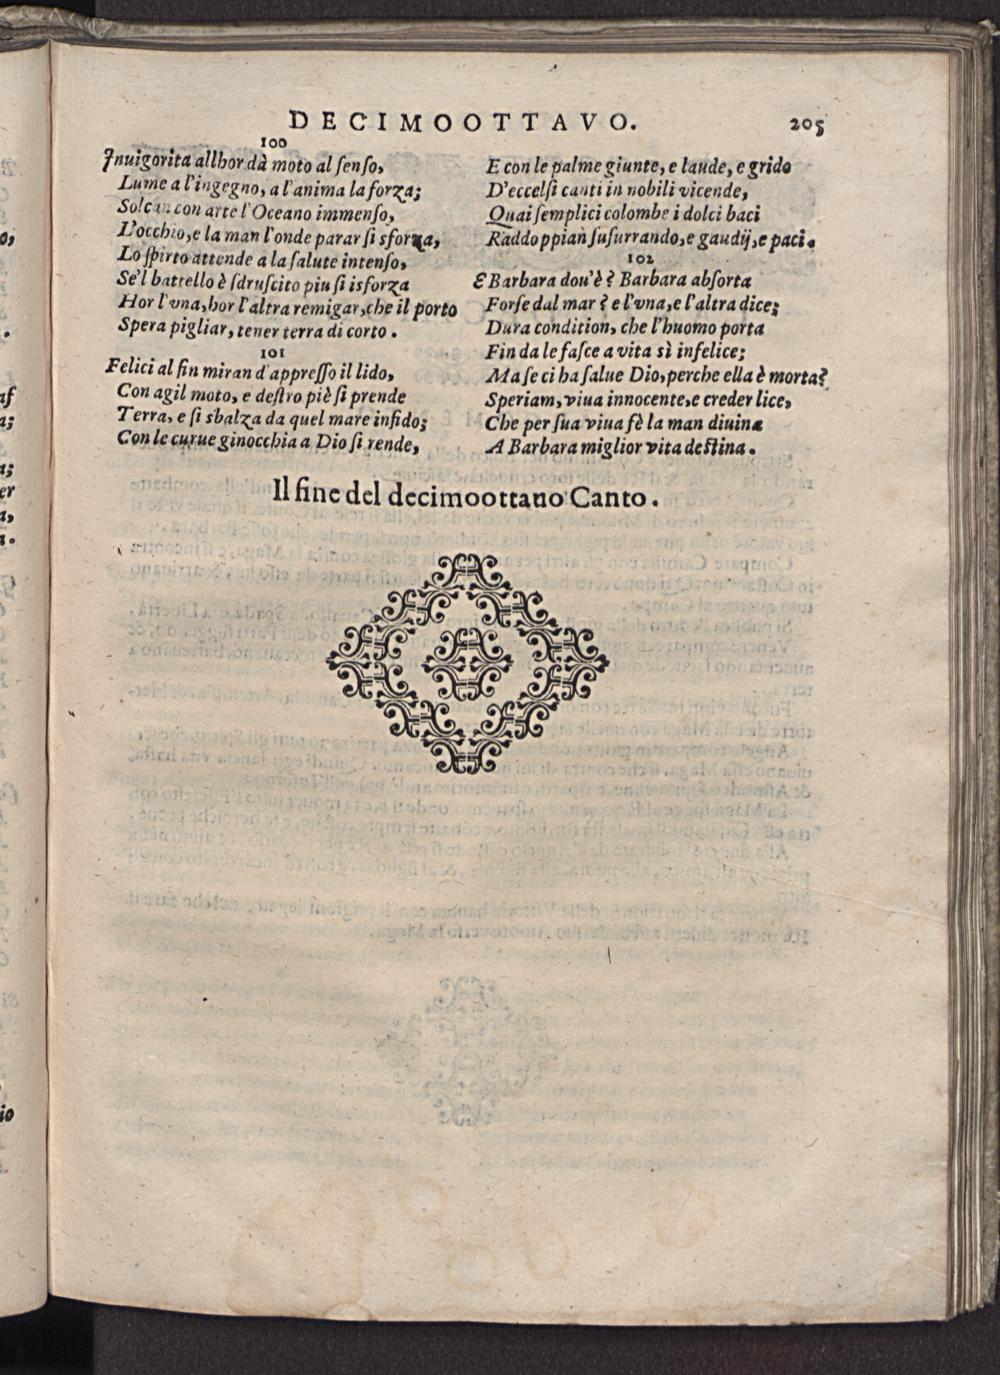 DECIMOOTTAVO. 205
100
Inuigorita allhor dà moto al ſenſo,
Lume a l'ingegno, a l'anima la forza;
Solcan con arte l'Oceano immenſo,
L'occhio, e la man l'onde parar ſi sforza,
Lo ſpirto attende a la ſalute intenſo,
Se'l battello è ſdruſcito piu ſi isforza
Hor l'vna, hor l'altra remigar, che il porto
Spera pigliar, tener terra di corto.
101
Felici al fin miran d'appreſſo il lido,
Con agil moto, e deſtro piè ſi prende
Terra, e ſi sbalza da quel mare infido;
Con le curue ginocchia a Dio ſi rende,
E con le palme giunte, e laude, e grido
D'eccelſi canti in nobili vicende,
Quai ſemplici colombe i dolci baci
Raddoppian ſuſurrando, e gaudij, e paci.
102
E Barbara dou'è? Barbara abſorta
Forſe dal mar? e l'vna, e l'altra dice;
Dura condition, che l'huomo porta
Fin da le faſce a vita sì infelice;
Ma ſe ci ha ſalue Dio, perche ella è morta?
Speriam, viua innocente, e creder lice,
Che per ſua viua fè la man diuina
A Barbara miglior vita deſtina.
Il fine del decimoottauo Canto.